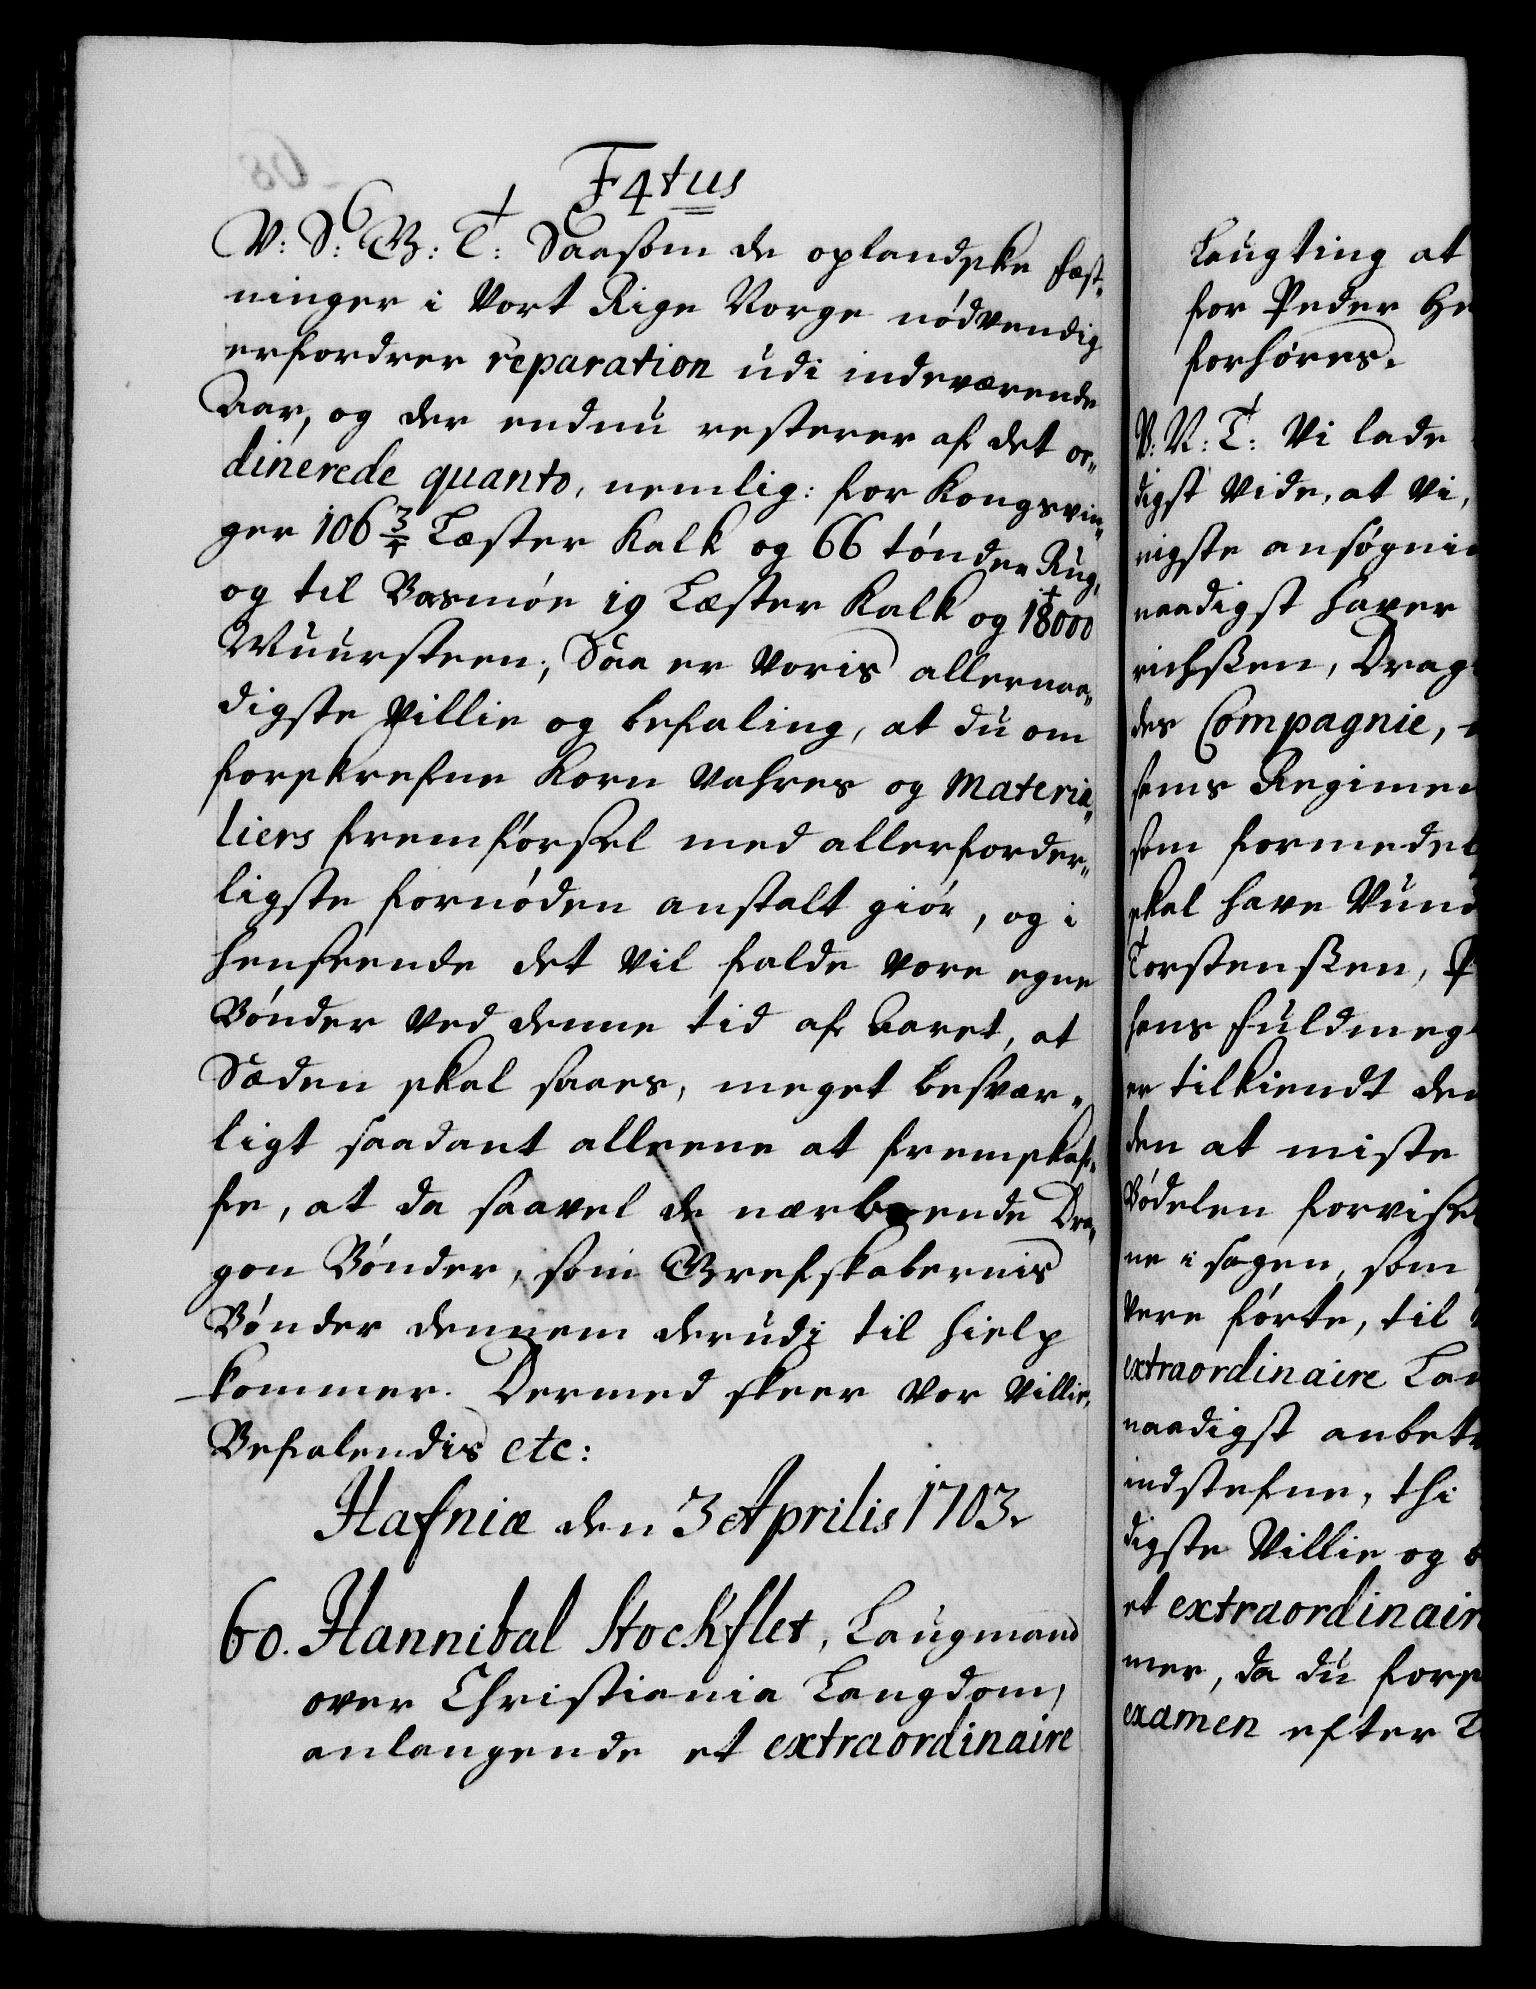 F4tus
V: S: G: T: Saasom de oplandske Fæst-
ninger i Vort Rige Norge nødvendig
erfordrer reparation udi indeværende
Aar, og der endnu resterer af det or-
dinerede quanto, nemlig: for Kongsvin-
ger 106 3/4 Læster Kalk og 66 tønder Rug,
og til Basmøe 19 Læster Kalk og 18000
Muursteen; Saa er Voris allernaa-
digste Villie og befaling, at du om
forskrefne Korn Vahres og Materia-
liers fremførsel med allerforder-
ligste fornøden anstalt giør, og i
henseende det vil falde vore egne
Bønder ved denne tid af Aaret, at
Sæden skal saaes, meget besvær-
ligt saadant alleene at fremskaf-
fe, at da saavel de nærboende Dra-
gon Bønder, som Grefskabernis
Bønder dennem derudi til hielp
kommer. Dermed skeer vor Villie.
Befalendis etc:
Hafniæ den 3 Aprilis 1703.
60. Hannibal Stockflet, Laugmand
over Christiania Laugdom,
anlangende et extraordinaire
Laugting at
for Peder He
forhøres.
V: N: T: Vi lade
digst Vide, at Vi,
rigste ansøgni
naadigst haver
richssen, Drag
des Compagnie,
hems Regimen
som formedel
skal have Vund
Torstenssen, P
hans fuldmeg
er tilkiendt de
den at miste
Bødelen forvise
ne i sagen, som
vere førte, til
extraordinaire Lau
naadigst anbet
indstefne, thi
digste Villie og b
et extraordinair
mer, da du fors
examen efter L